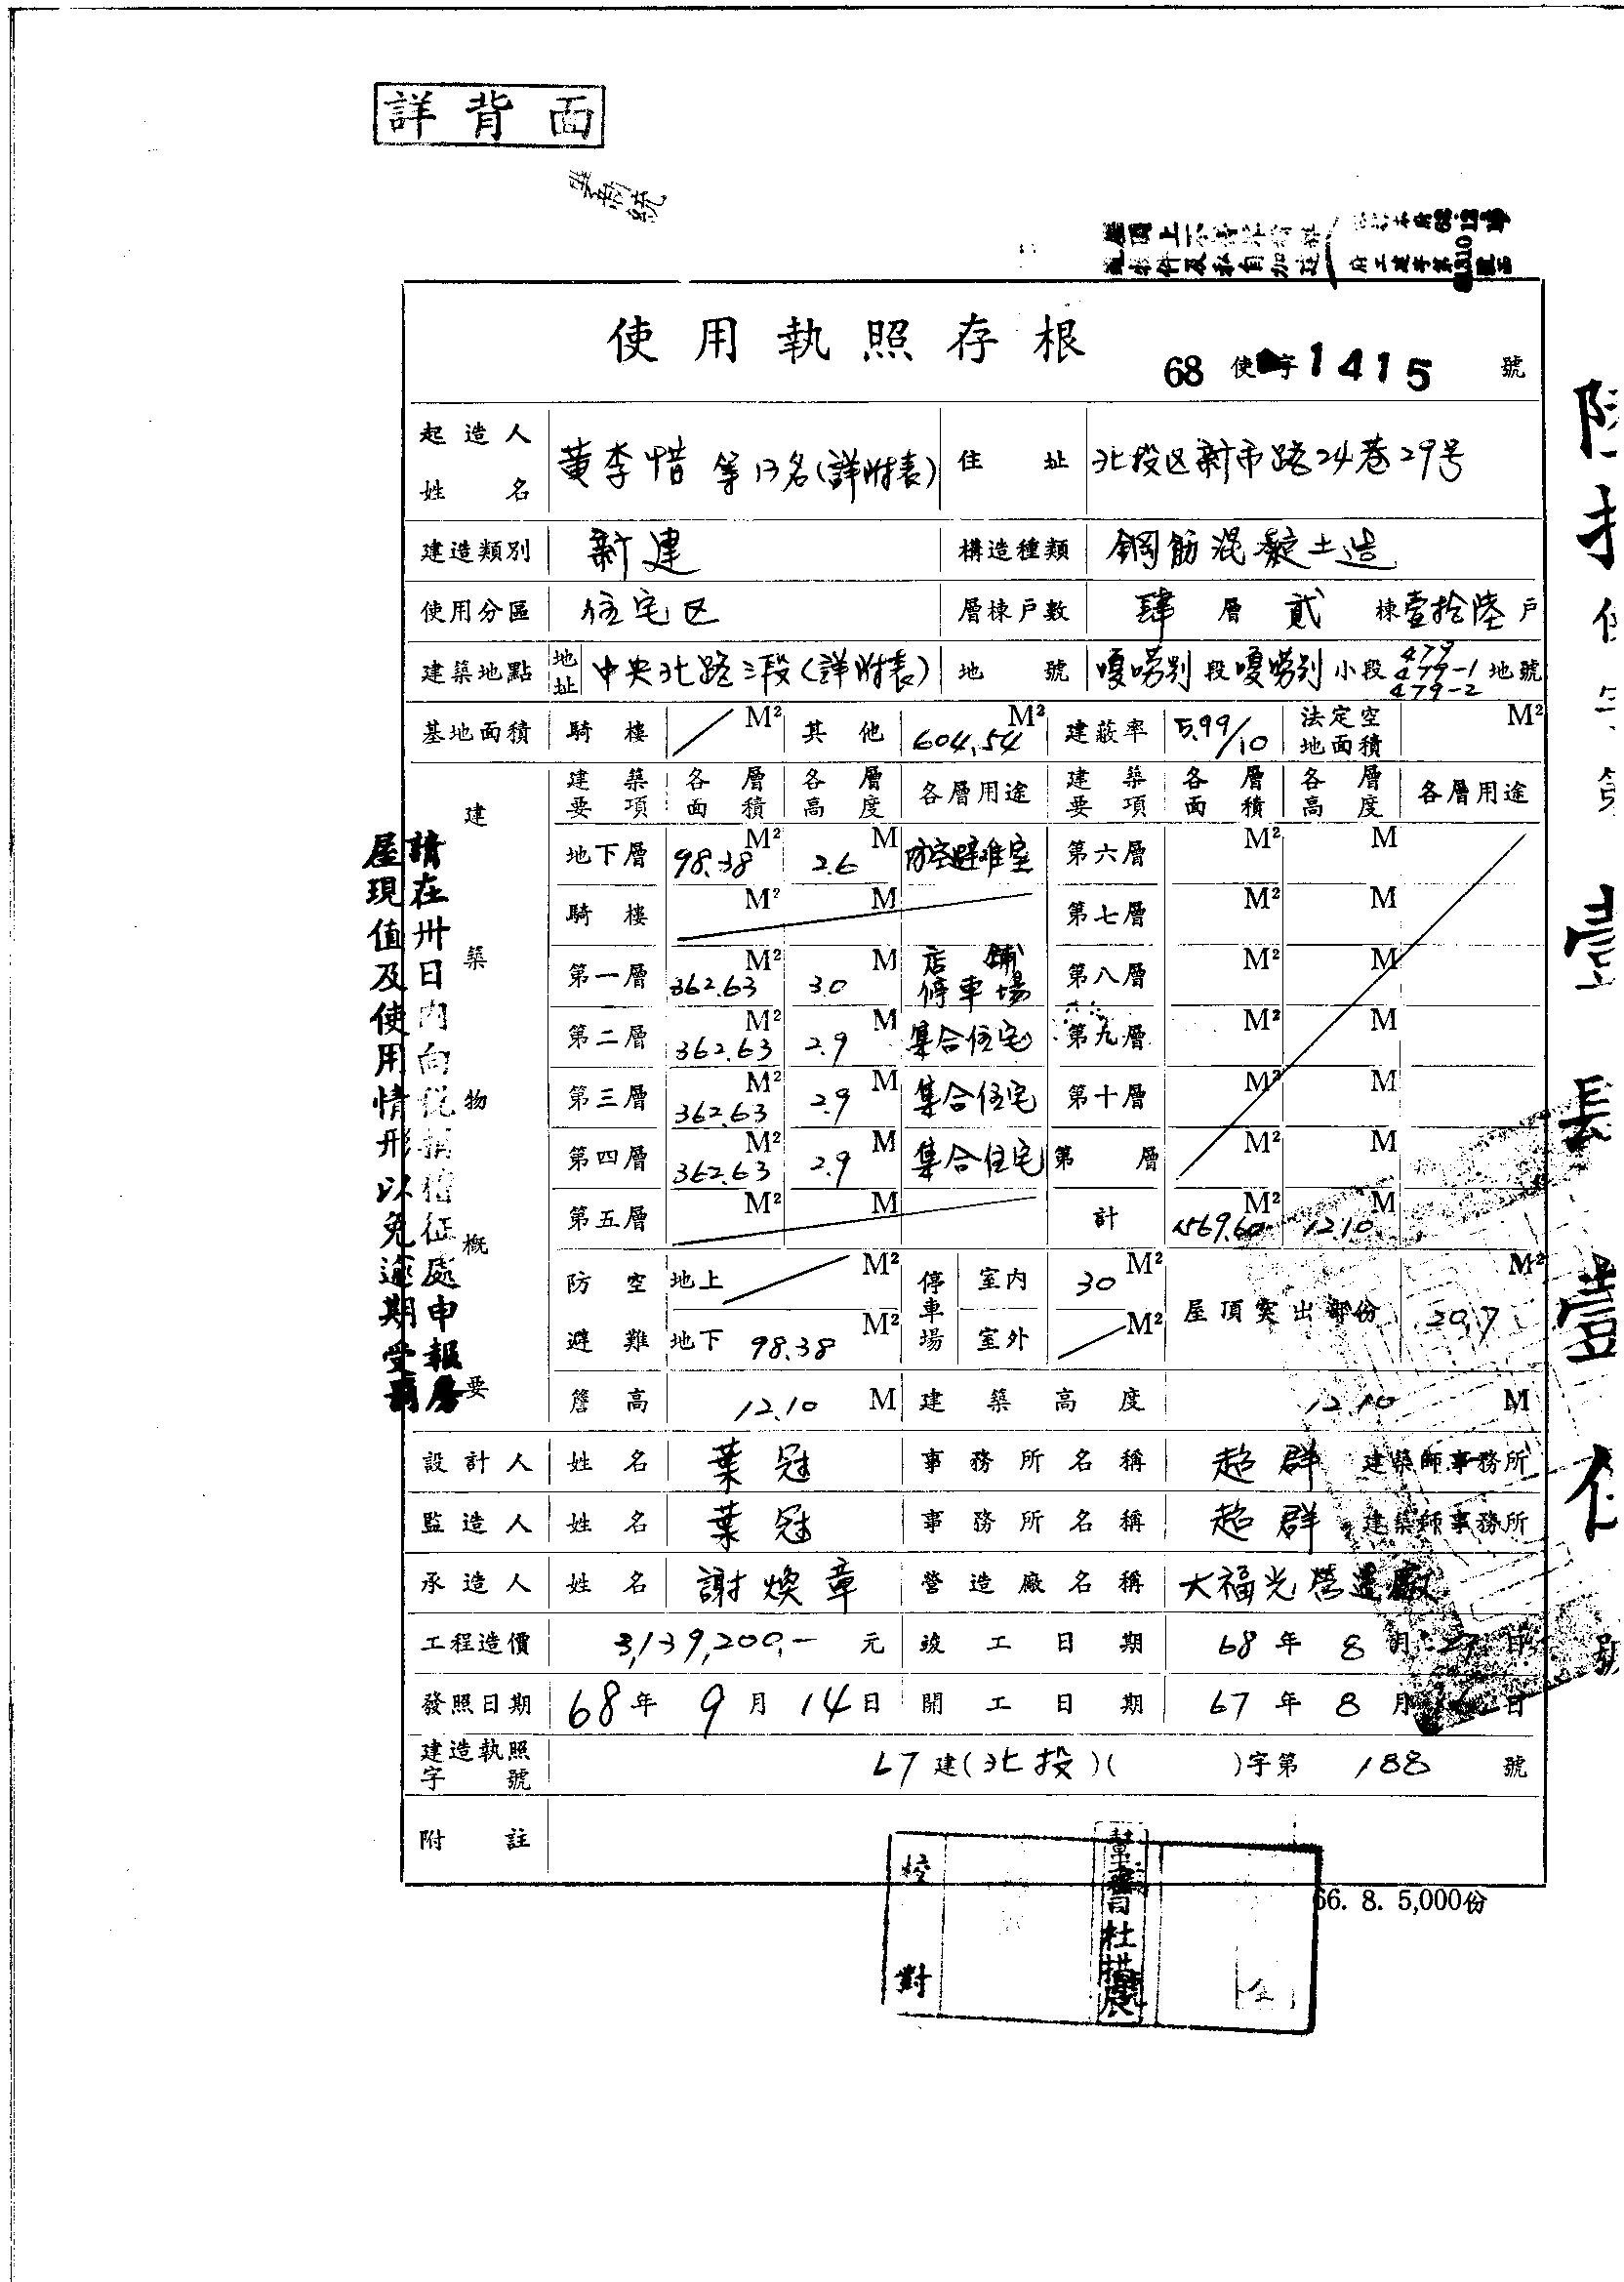 詳背面
使用執照存根
68 使字 1415 號
起造人姓名 黃李惜 等13名(詳附表) 住址 北投区新市路24巷29号
建造類別 新建 構造種類 鋼筋混凝土造
使用分區 住宅区 層棟戶數 肆層貳棟壹拾陸戶
建築地點 地址 中央北路三段(詳附表) 地號 嗄嘮別段嗄嘮別小段 479 479-1 479-2 地號
基地面積 騎樓 / M² 其他 604.54 M² 建蔽率 5.99/10 法定空地面積 M²
建築物概要
建築要項 各層面積 各層高度 各層用途 建築要項 各層面積 各層高度 各層用途
地下層 98.38 M² 2.6 M 防空避难室 第六層 M² M
騎樓 M² M 第七層 M² M
第一層 362.63 M² 3.0 M 店舖 停車場 第八層 M² M
第二層 362.63 M² 2.9 M 集合住宅 第九層 M² M
第三層 362.63 M² 2.9 M 集合住宅 第十層 M² M
第四層 362.63 M² 2.9 M 集合住宅 第 層 M² M
第五層 M² M 計 1569.60 M² 12.10 M
防空避難 地上 / M² 停車場 室內 30 M² 屋頂突出部份 20.7 M²
地下 98.38 M² 室外 / M²
簷高 12.10 M 建築高度 12.10 M
設計人 姓名 葉冠 事務所名稱 超群 建築師事務所
監造人 姓名 葉冠 事務所名稱 超群 建築師事務所
承造人 姓名 謝煥章 營造廠名稱 大福光營造廠
工程造價 3,139,200.- 元 竣工日期 68年8月27日
發照日期 68年9月14日 開工日期 67年8月16日
建造執照字號 67建(北投)( )字第188號
附註
66. 8. 5,000份
請在卅日內向稅捐稽征處申報房
屋現值及使用情形以免逾期受罰
校對
壹長壹